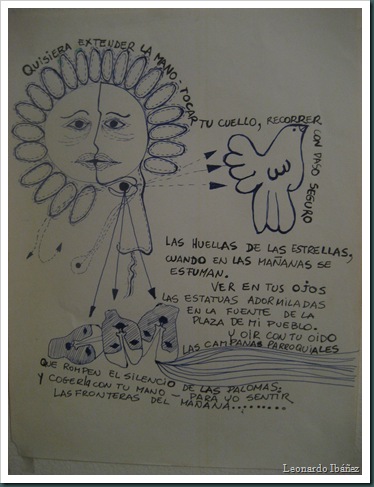 QUISIERA EXTENDER LA MANO - TOCAR
TU CUELLO, RECORRER
CON PASO SEGURO
LAS HUELLAS DE LAS ESTRELLAS,
CUANDO EN LAS MAÑANAS SE
ESFUMAN.
VER EN TUS OJOS
LAS ESTATUAS ADORMILADAS
EN LA FUENTE DE LA
PLAZA DE MI PUEBLO.
Y OIR CON TU OIDO
LAS CAMPANAS PARROQUIALES
QUE ROMPEN EL SILENCIO DE LAS PALOMAS.
Y COGERIA CON TU MANO - PARA YO SENTIR
LAS FRONTERAS DEL MAÑANA.........
Leonardo Ibáñez